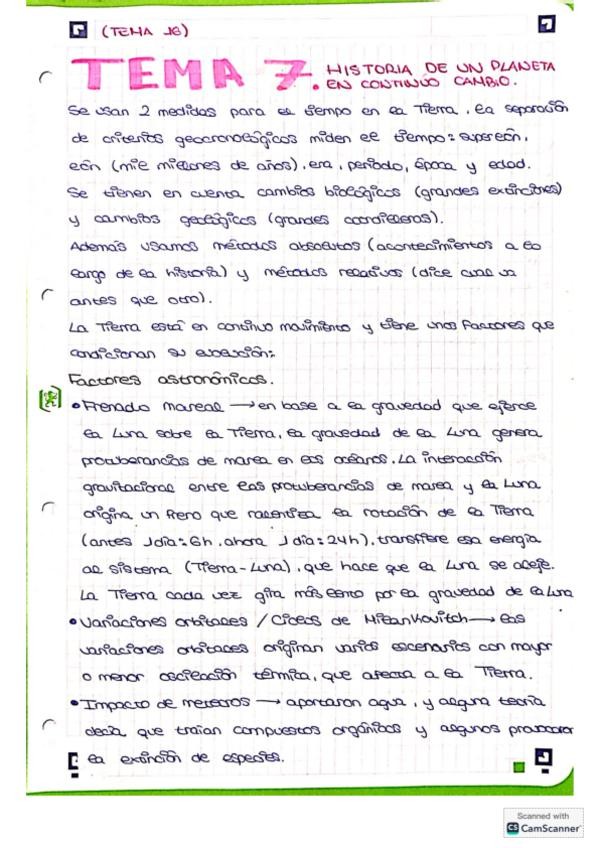 (TEMA 16)
TEMA 7. HISTORIA DE UN PLANETA
EN CONTINUO CAMBIO.
Se usan 2 medidas para el tiempo en la Tierra. La separación
de criterios geocronológicos miden el tiempo: supereón,
eón (mil millones de años), era, período, época y edad.
Se tienen en cuenta cambios biológicos (grandes extinciones)
y cambios geológicos (grandes cordilleras).
Además usamos métodos absolutos (acontecimientos a lo
largo de la historia) y métodos relativos (dice cual va
antes que otro).
La Tierra está en continuo movimiento y tiene unos factores que
condicionan su evolución:
Factores astronómicos.
• Frenado mareal → en base a la gravedad que ejerce
la Luna sobre la Tierra. La gravedad de la Luna genera
protuberancias de marea en los océanos. La interacción
gravitacional entre las protuberancias de marea y la Luna
origina un freno que ralentiza la rotación de la Tierra
(antes 1 día = 6h, ahora 1 día = 24h), transfiere esa energía
al sistema (Tierra-Luna), que hace que la Luna se aleje.
La Tierra cada vez gira más lento por la gravedad de la Luna
• Variaciones orbitales / Ciclos de Milankovitch → las
variaciones orbitales originan varios escenarios con mayor
o menor oscilación térmica, que afecta a la Tierra.
• Impacto de meteoros → aportaron agua, y alguna teoría
decía que traían compuestos orgánicos y algunos
la extinción de especies.
Scanned with
CS CamScanner